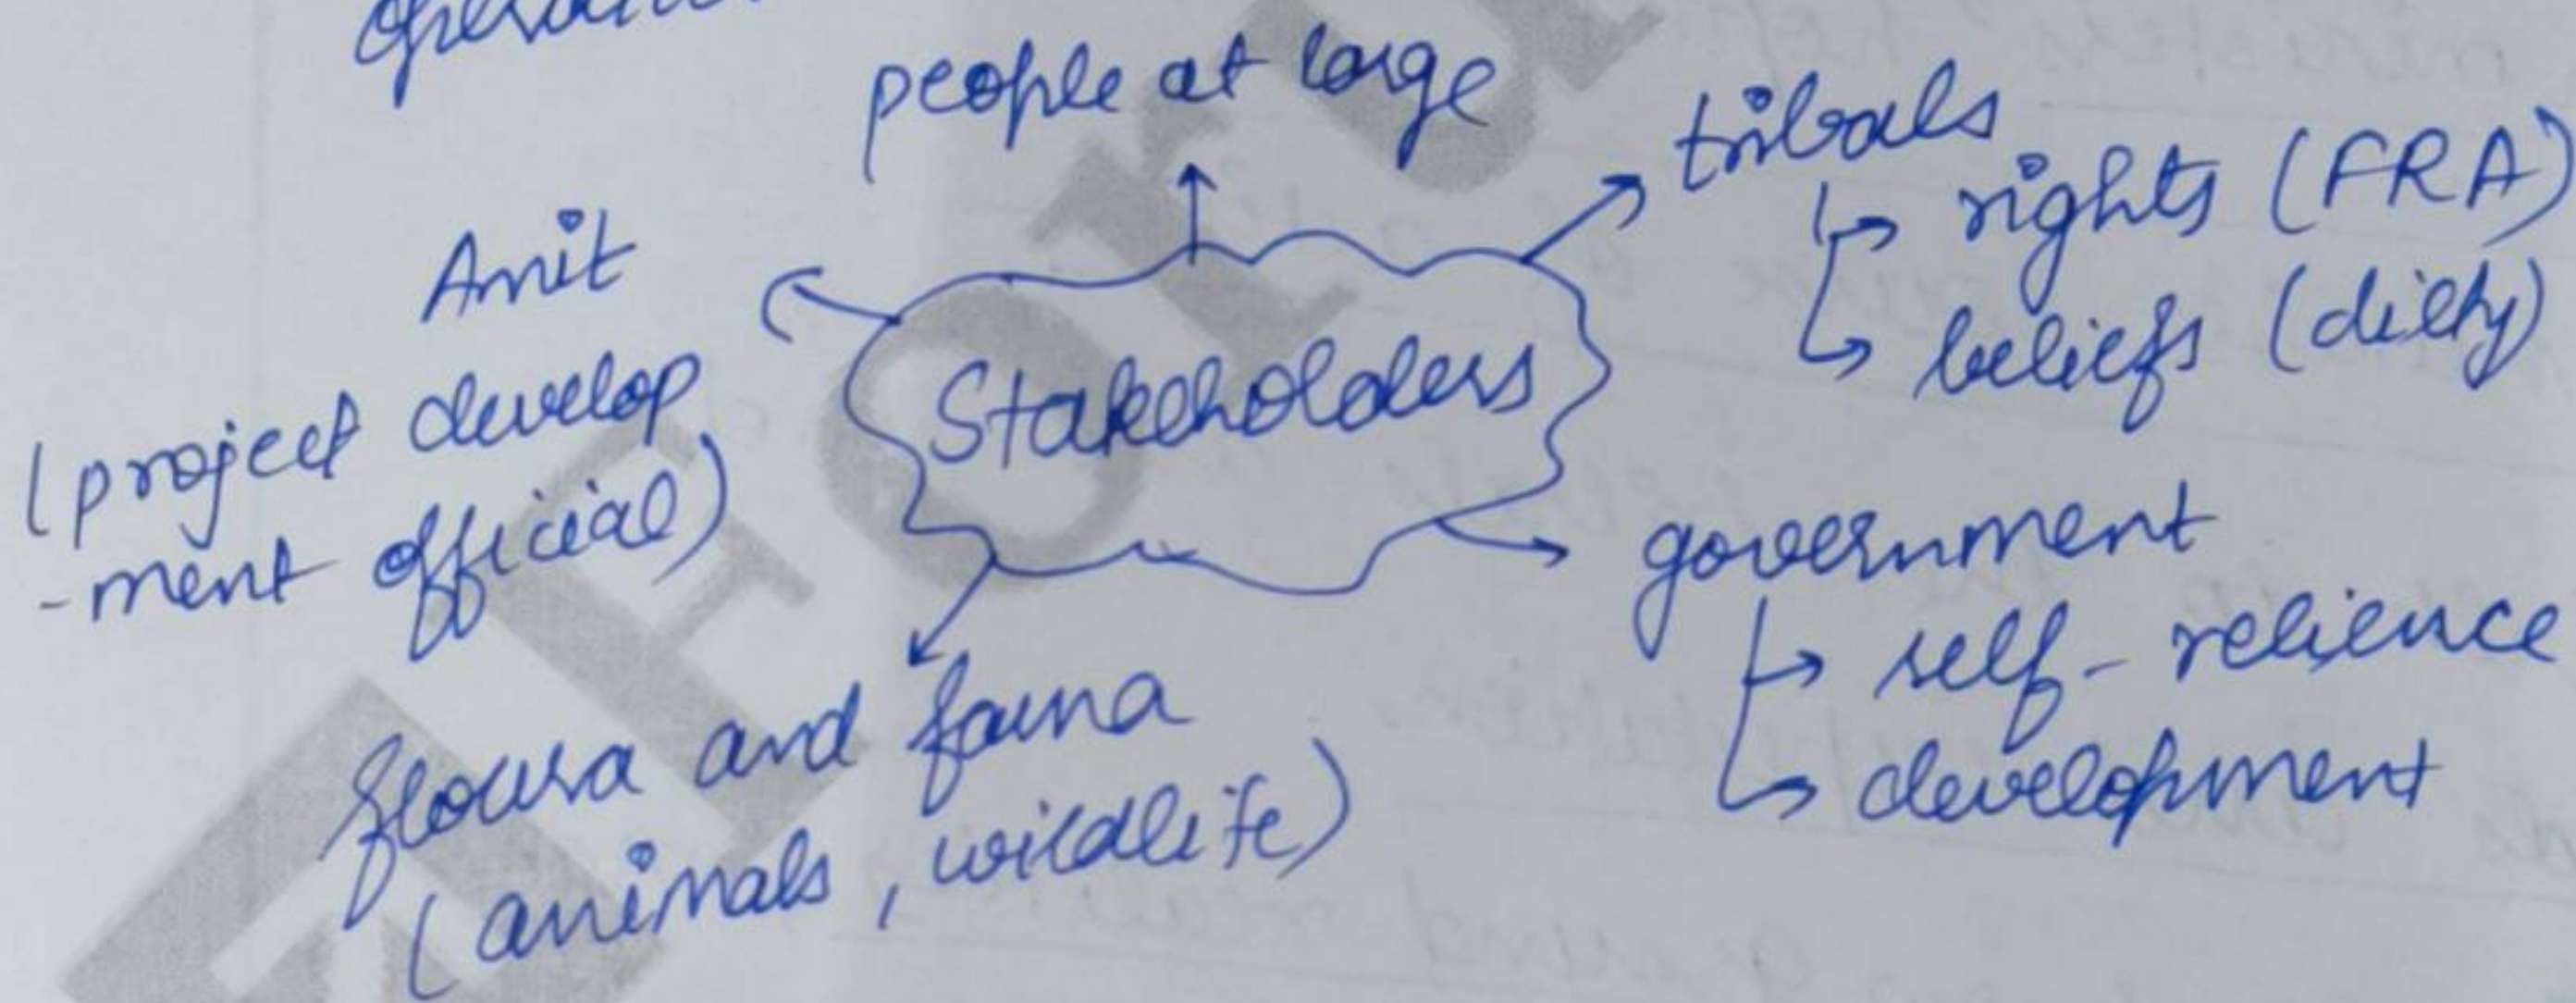 people at large
tribals
rights (FRA)
beliefs (diety)
Amit
(project develop
-ment official)
Stakeholders
government
self-relience
development
floura and fauna
(animals, wildlife)